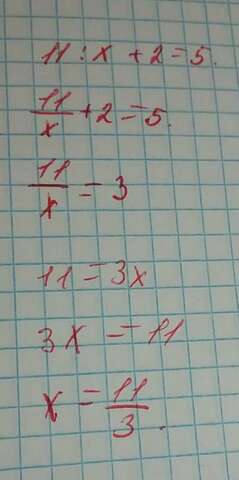 11 : x + 2 = 5.
11/x + 2 = 5.
11/x = 3
11 = 3x
3x = 11
x = 11/3.